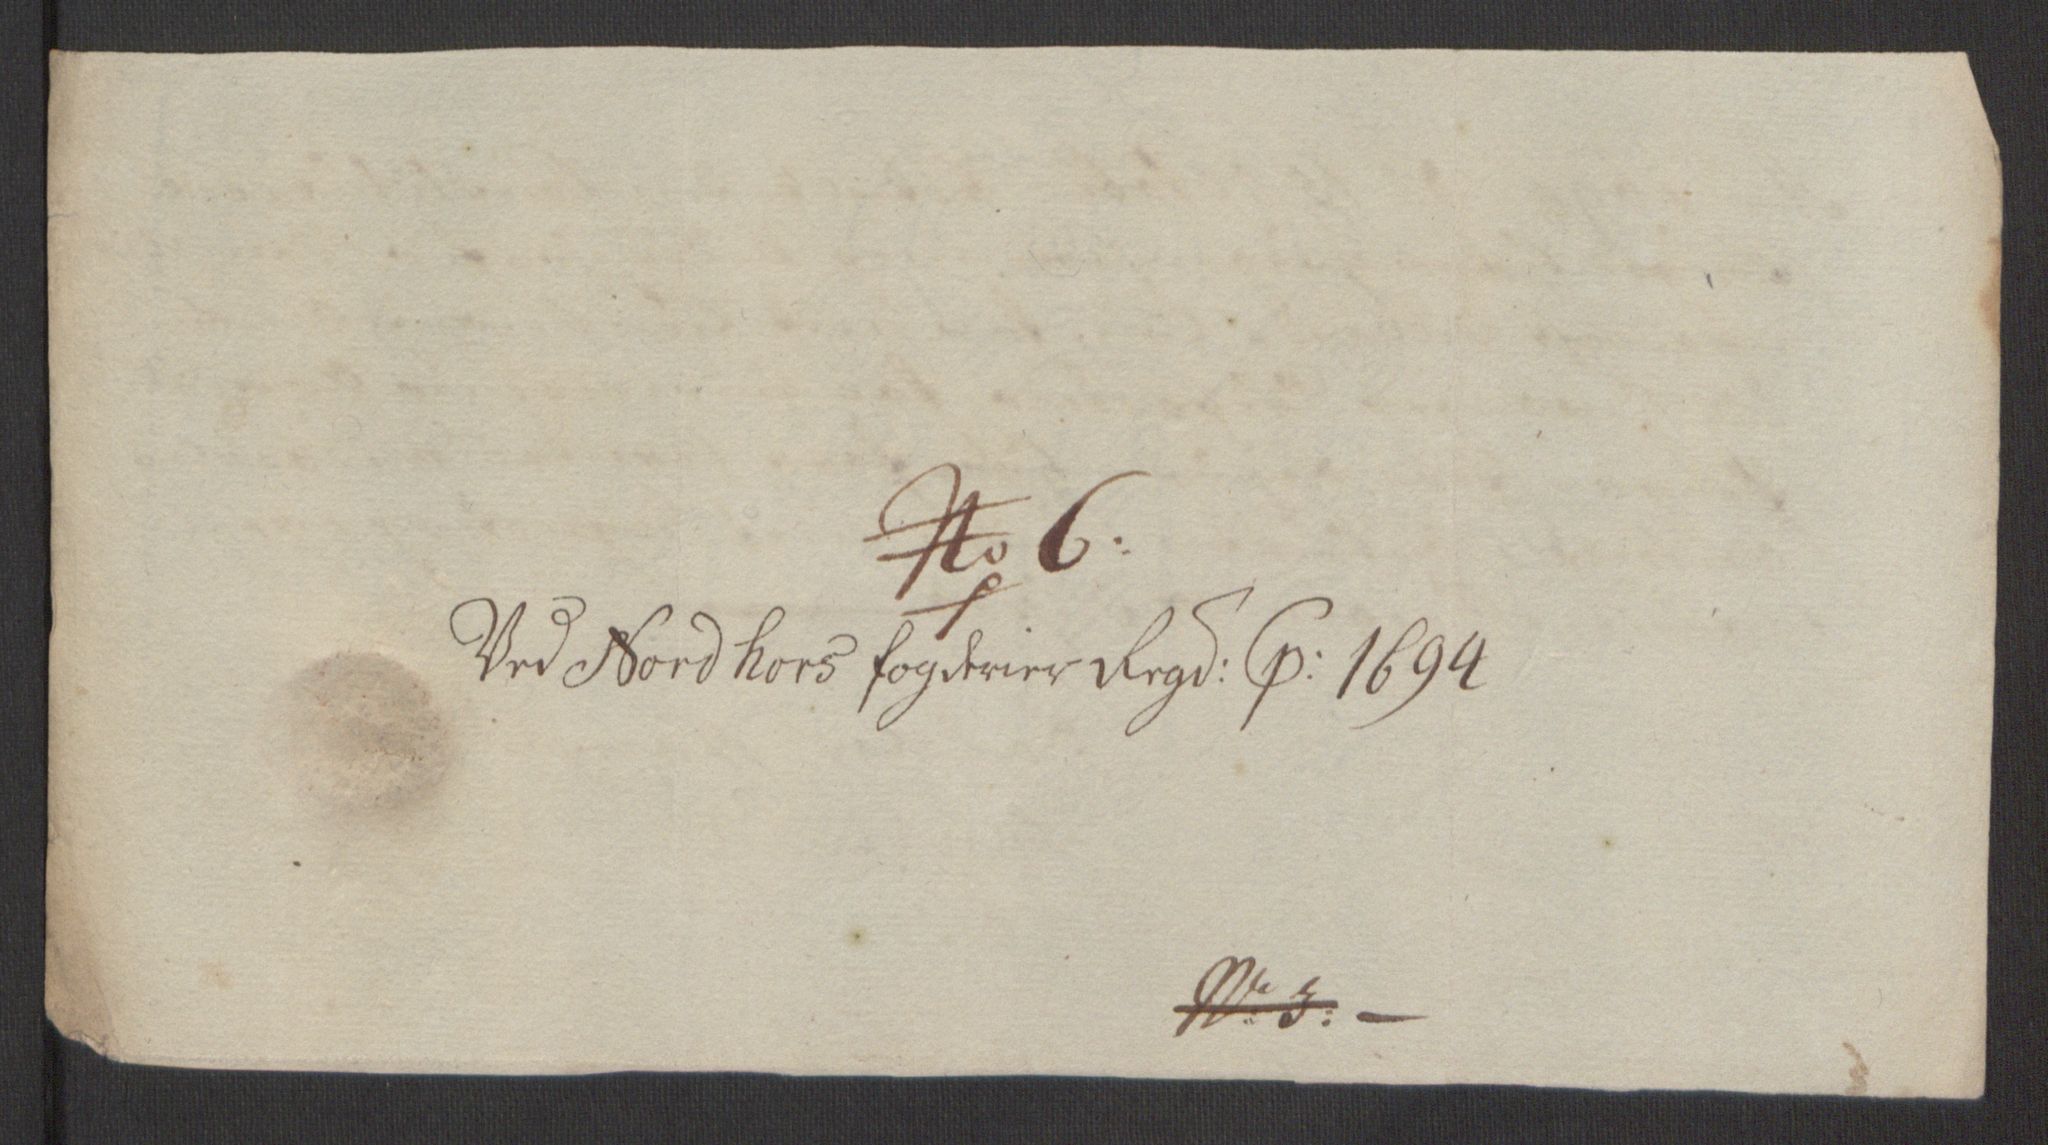 No 6:
Ved Nordhors fogderier Regd: p: 1694
N: 3: —